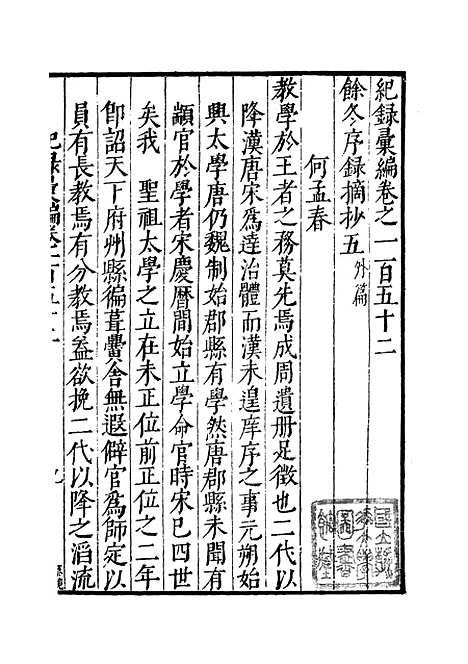 紀録彙編卷之一百五十二
餘冬序録摘抄五 外篇
何孟春
教學於王者之務莫先焉成周遺册足徵也二代以
降漢唐宋爲達治體而漢未遑庠序之事元朔始
興太學唐仍魏制始郡縣有學然唐郡縣未聞有
顓官於學者宋慶曆間始立學命官時宋已四世
矣我 聖祖太學之立在未正位前正位之二年
卽詔天下府州縣徧葺黌舍無遐僻官爲師定以
員有長教焉有分教焉葢欲挽二代以降之滔流
紀録彙編卷一百五十二 九